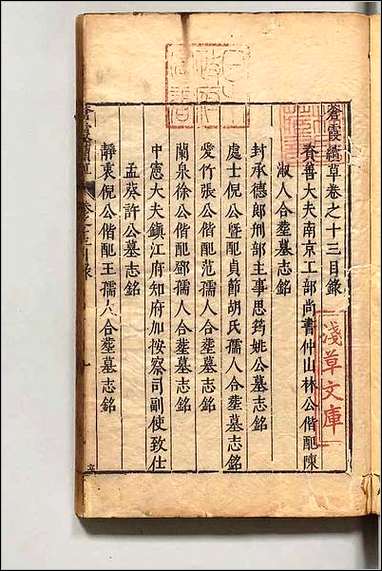 蒼霞續草卷之十三目錄
資善大夫南京工部尚書仲山林公偕配陳
淑人合葬墓志銘
封承德郎刑部主事思筠姚公墓志銘
處士倪公暨配貞節胡氏孺人合葬墓志銘
愛竹張公偕配范孺人合葬墓志銘
蘭泉徐公偕配鄧孺人合葬墓志銘
中憲大夫鎮江府知府加按察司副使致仕
孟葵許公墓志銘
靜裏倪公偕配王孺人合葬墓志銘
淺草文庫
蒼霞續草 卷之十三目錄 一